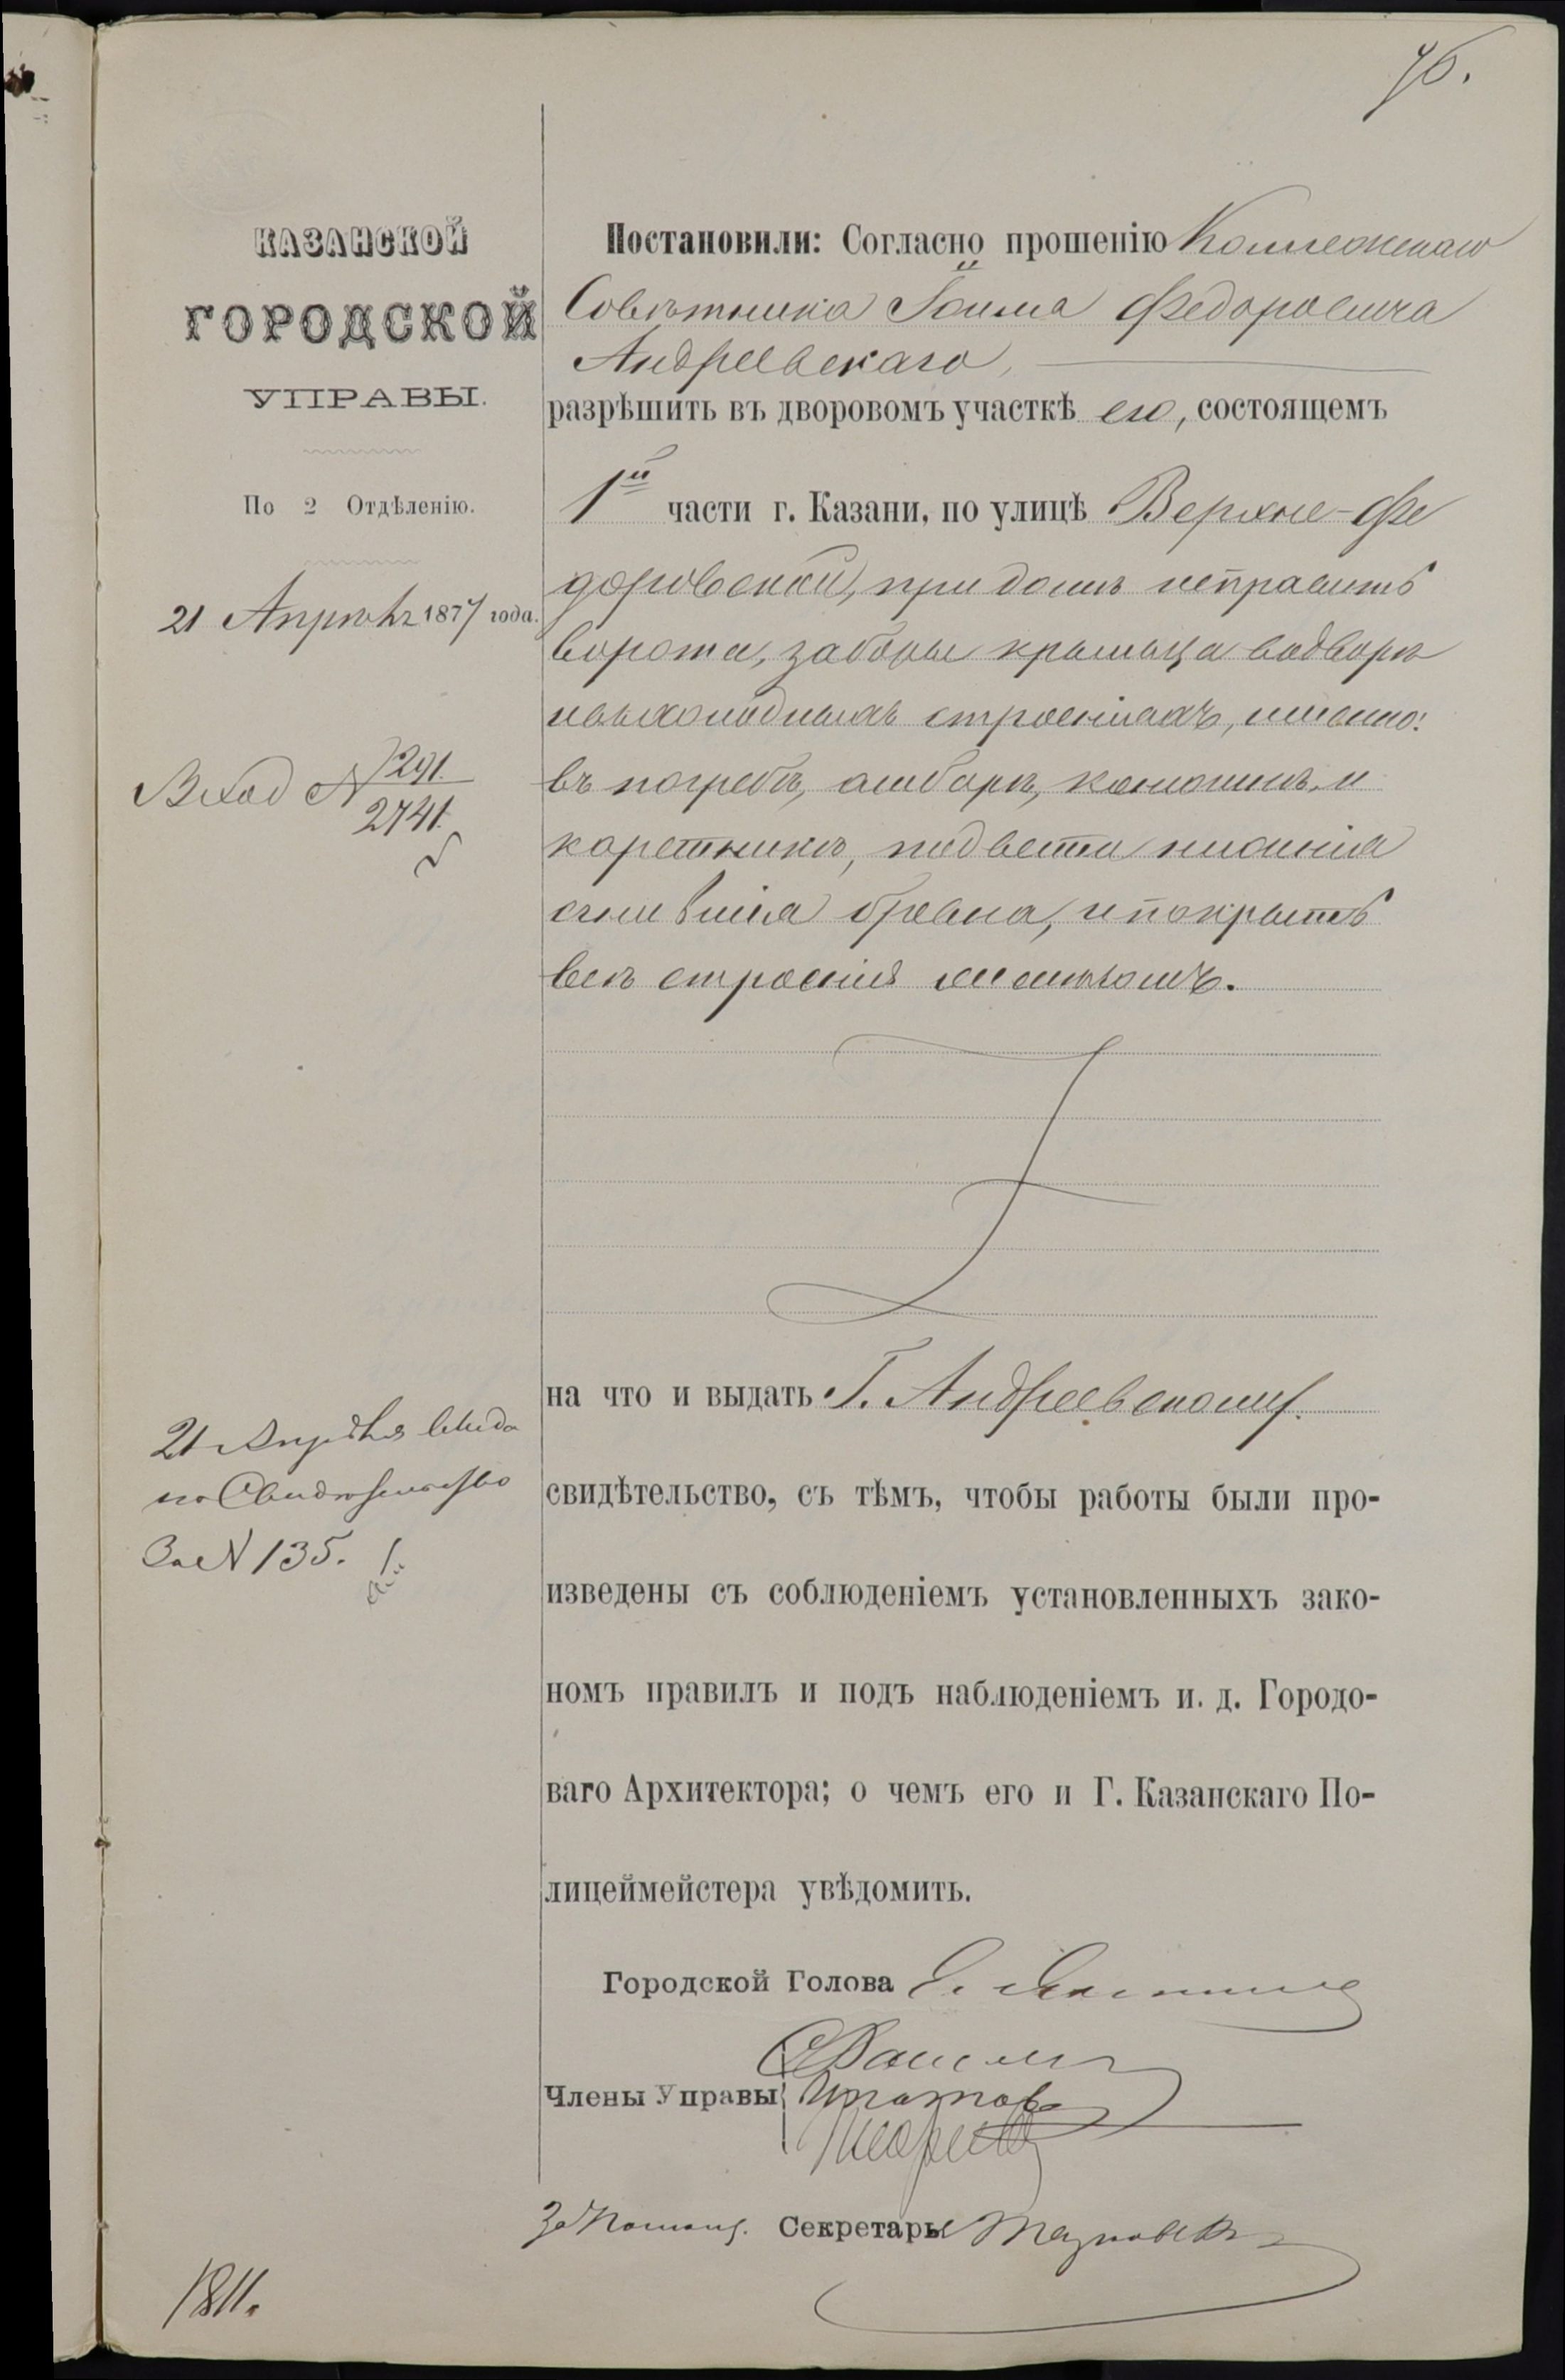 76.
КАЗАНСКОЙ
ГОРОДСКОЙ
УПРАВЫ.
По 2 Отдѣленію.
21 Апрѣля 1877 года.
Вход № 291
2741.
21 Апрѣля выда
но Свидѣтельство
За № 135.
1811.
Постановили: Согласно прошенію Коллежскаго
Совѣтника Федоровича
Андреевскаго,
разрѣшить въ дворовомъ участкѣ его, состоящемъ
1й части г. Казани, по улицѣ Верхне-Фе
доровской, при домѣ исправить
ворота, заборы крыльца водворѣ
холодныхъ строеніяхъ, именно:
въ погребѣ, амбарѣ, конюшнѣ, и
каретникѣ, подвести нижнія
сгнившія бревна, и покрыть
всѣ строенія желѣзомъ.
на что и выдать Г. Андреевскому.
свидѣтельство, съ тѣмъ, чтобы работы были про-
изведены съ соблюденіемъ установленныхъ зако-
номъ правилъ и подъ наблюденіемъ и. д. Городо-
ваго Архитектора; о чемъ его и Г. Казанскаго По-
лицеймейстера увѣдомить.
Городской Голова
Члены Управы
За Секретаря